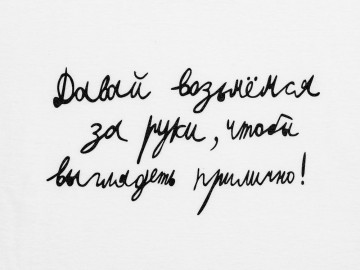 Давай возьмёмся
за руки, чтобы
выглядеть прилично!